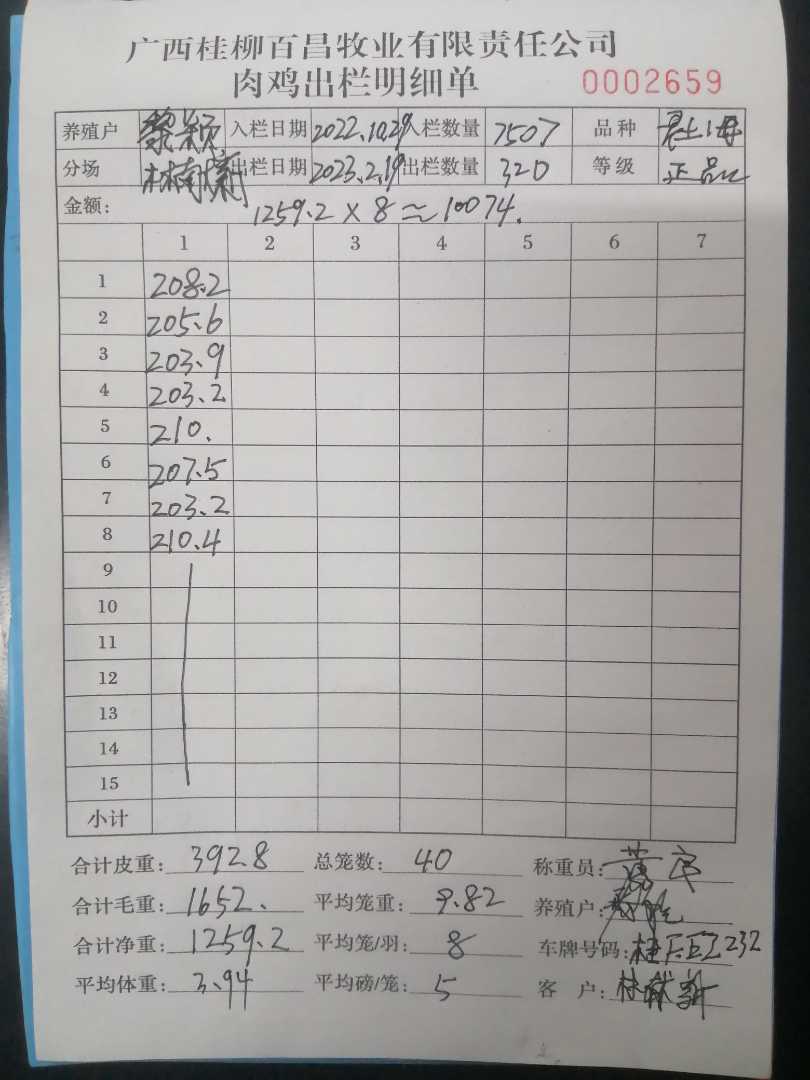 广西桂柳百昌牧业有限责任公司
肉鸡出栏明细单 0002659
养殖户 黎颖 入栏日期 2022.10.29 入栏数量 7507 品种
分场 林南 出栏日期 2023.2.19 出栏数量 320 等级 正品
金额: 1259.2 × 8 ≈ 10074.
1 2 3 4 5 6 7
1 208.2
2 205.6
3 203.9
4 203.2
5 210.
6 207.5
7 203.2
8 210.4
9
10
11
12
13
14
15
小计
合计皮重: 392.8 总笼数: 40 称重员:
合计毛重: 1652. 平均笼重: 9.82 养殖户:
合计净重: 1259.2 平均笼/羽: 8 车牌号码: 桂
平均体重: 3.94 平均磅/笼: 5 客户: 林